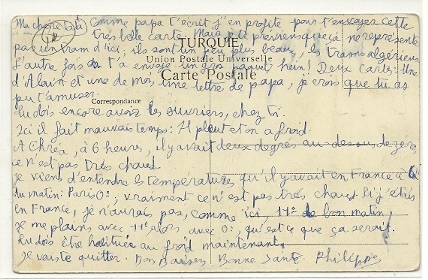 Ma chère Comme papa t'écrit j'en profite pour t'envoyer cette
très belle carte. Mais je te préviens que ça ne représente
pas un tram d'ici, ils sont un peu plus beaux, les trams algériens
TURQUIE
L'autre jour je t'a envoyé un gros paquet hein! Deux cartes: Une
Union Postale Universelle
d'Alain et une de moi, une lettre de papa, je crois que tu as
Carte Postale
pu t'amuser.
Correspondance
Tu dois encore avoir les ouvriers, chez toi.
Ici il fait mauvais temps: Il pleut et on a froid.
A Chréa, à 6 heures, il y avait deux degrés au-dessous de zéro,
ce n'est pas très chaud.
Je viens d'entendre les températures qu'il y avait en France à 6
du matin: Paris 0°; vraiment ce n'est pas très chaud. Si j'étais
en France, je n'aurai pas, comme ici, 11° de bon matin,
je me plains avec 11° alors avec 0°: qu'est ce que ça serait.
Tu dois être habituée au froid maintenant.
Je vais te quitter. Bons Baisers Bonne Santé Philippe